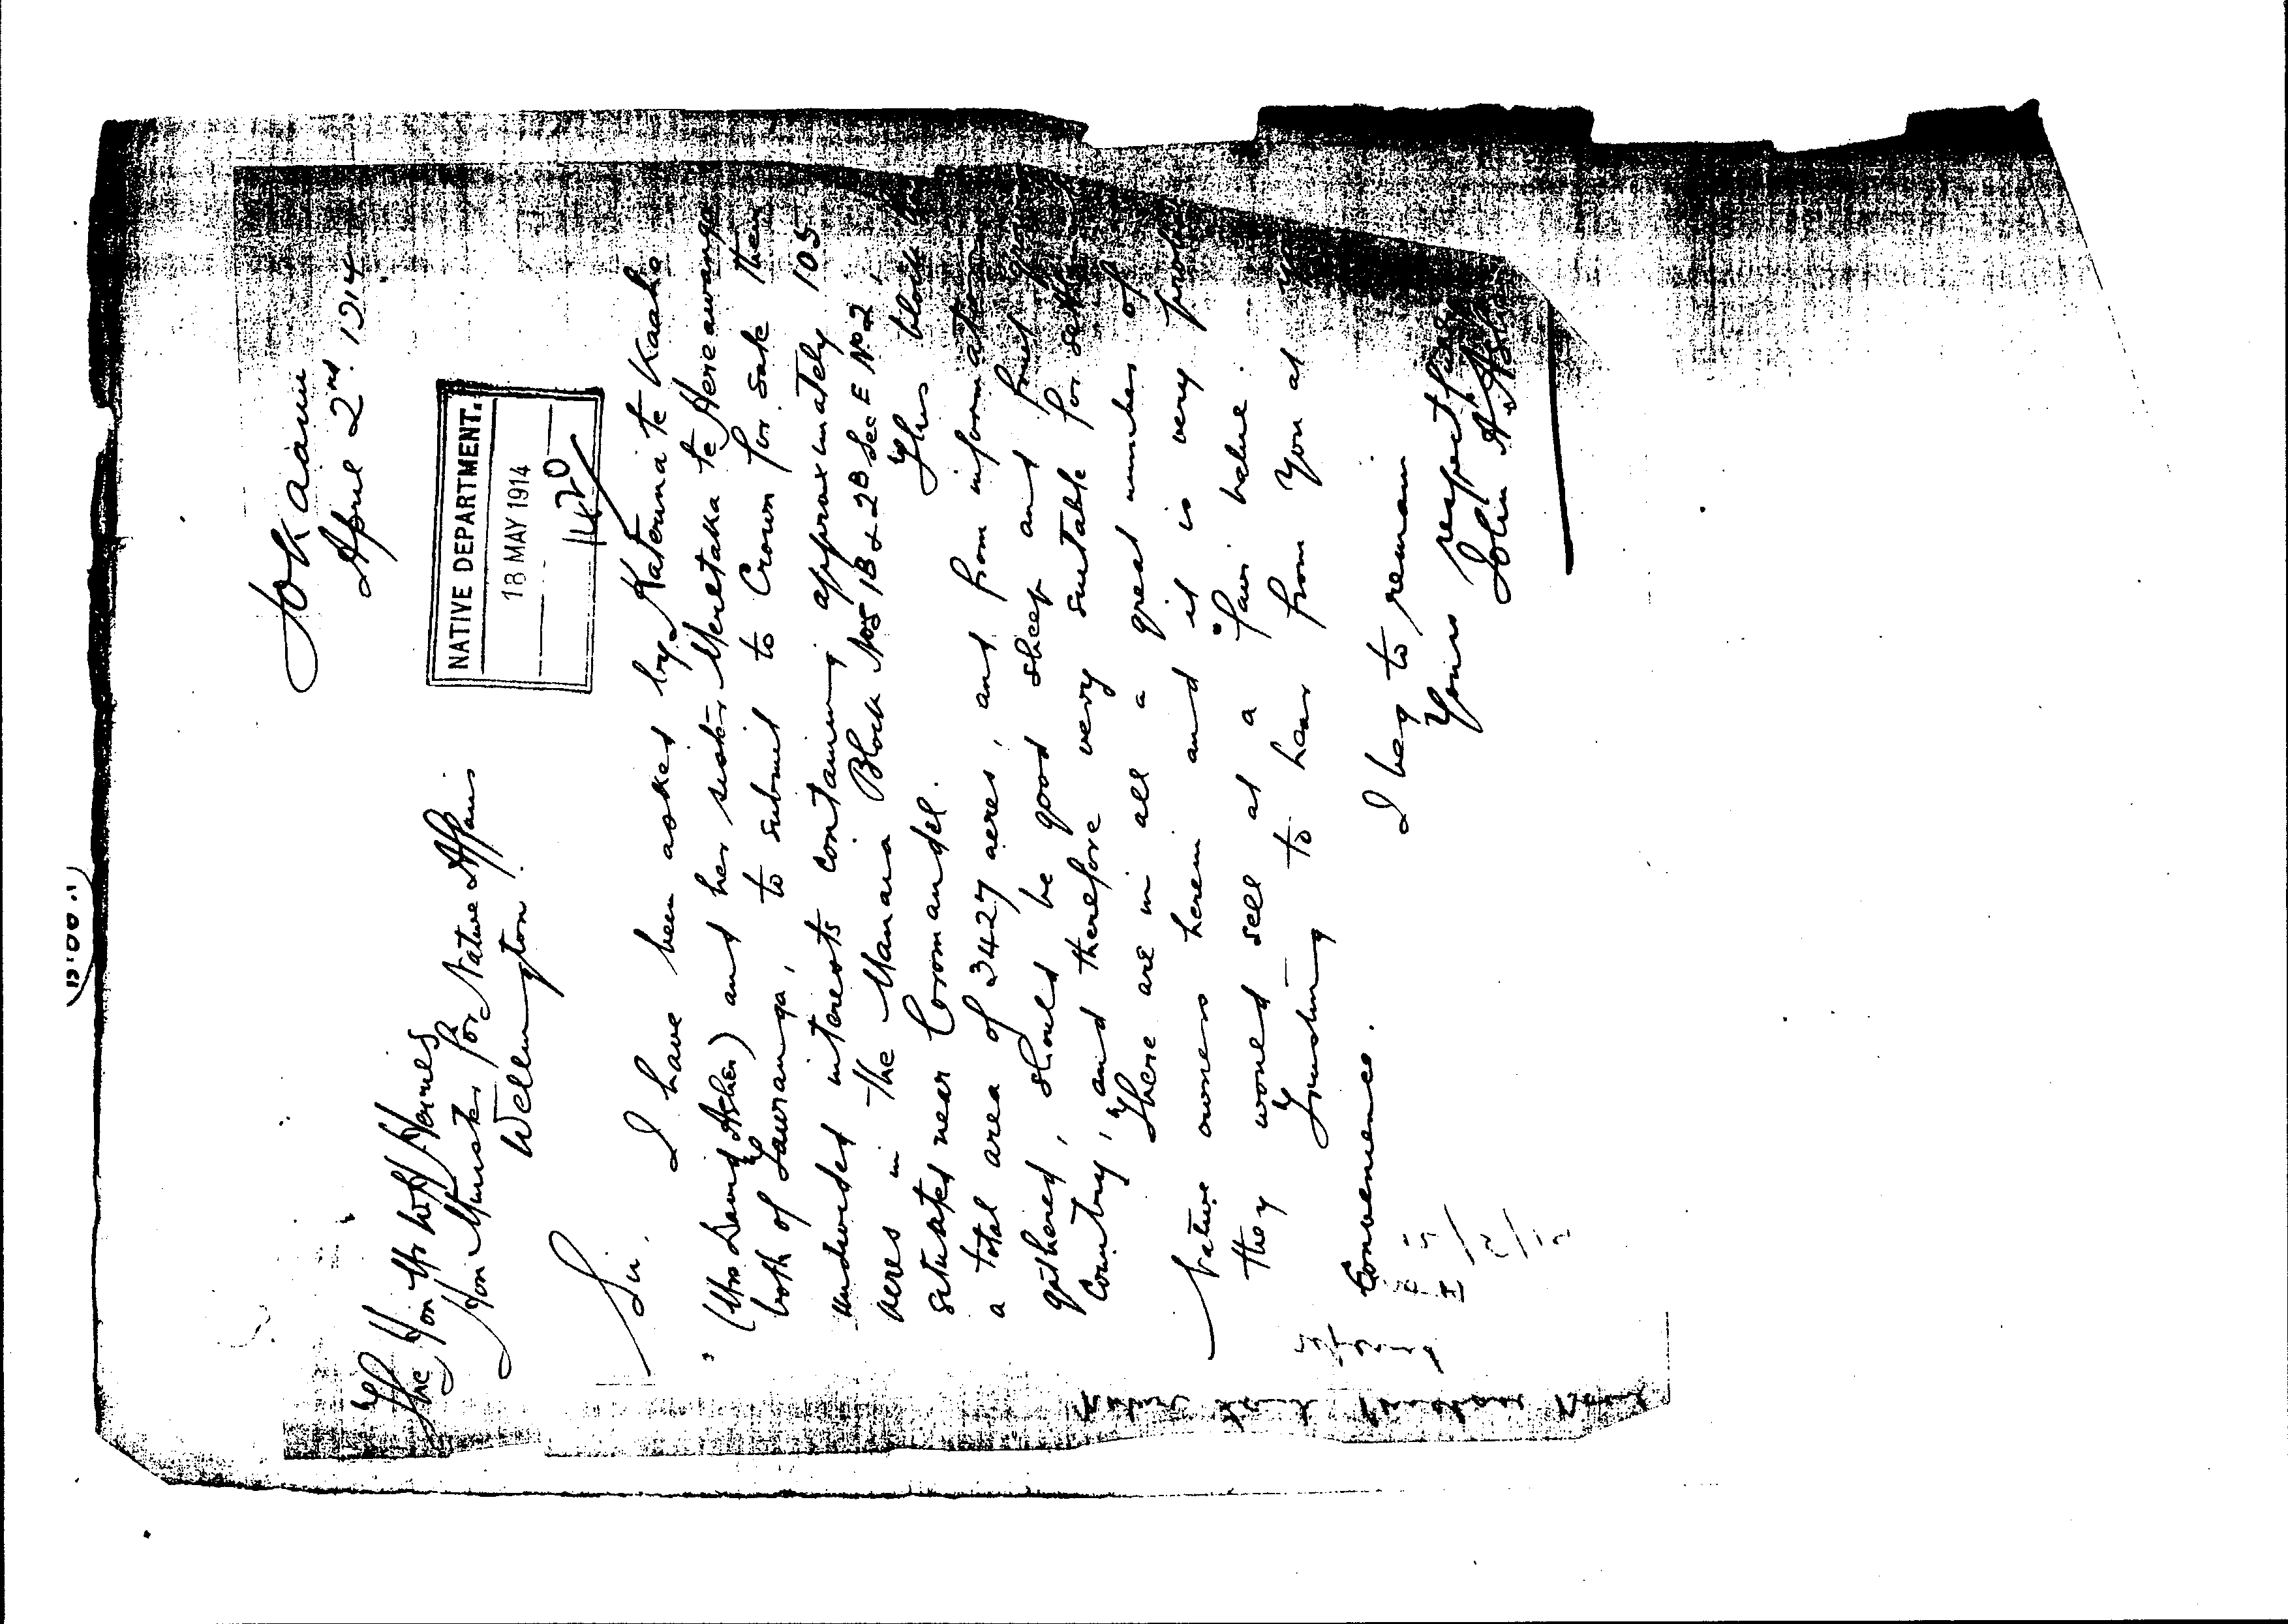 Tokaanu
April 2nd. 1914
NATIVE DEPARTMENT.
18 MAY 1914
1420
The Hon Mr W H Herries
Hon Minister for Native Affairs
Wellington.
Sir,
I have been asked by Katerina te Kaaho
(Mrs David Asher) and her sister Meretaka te Hereawanga
both of Tauranga, to submit to Crown for sale their
undivided interests containing approximately 105
acres in the Manaia Block Nos 1B & 2B Sec E No 2,
situated near Coromandel. This block has
a total area of 3427 acres, and from information
gathered, should be good sheep and
Country, and therefore very suitable for
There are in all a great number of
Native owners herein and it is very
they would sell at a fair value.
Trusting to hear from you at
Convenience.
I beg to remain
Yours respectfully
John A Asher